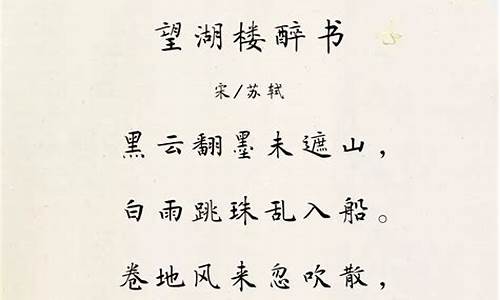 望湖楼醉书
宋/苏轼
黑云翻墨未遮山，
白雨跳珠乱入船。
卷地风来忽吹散，